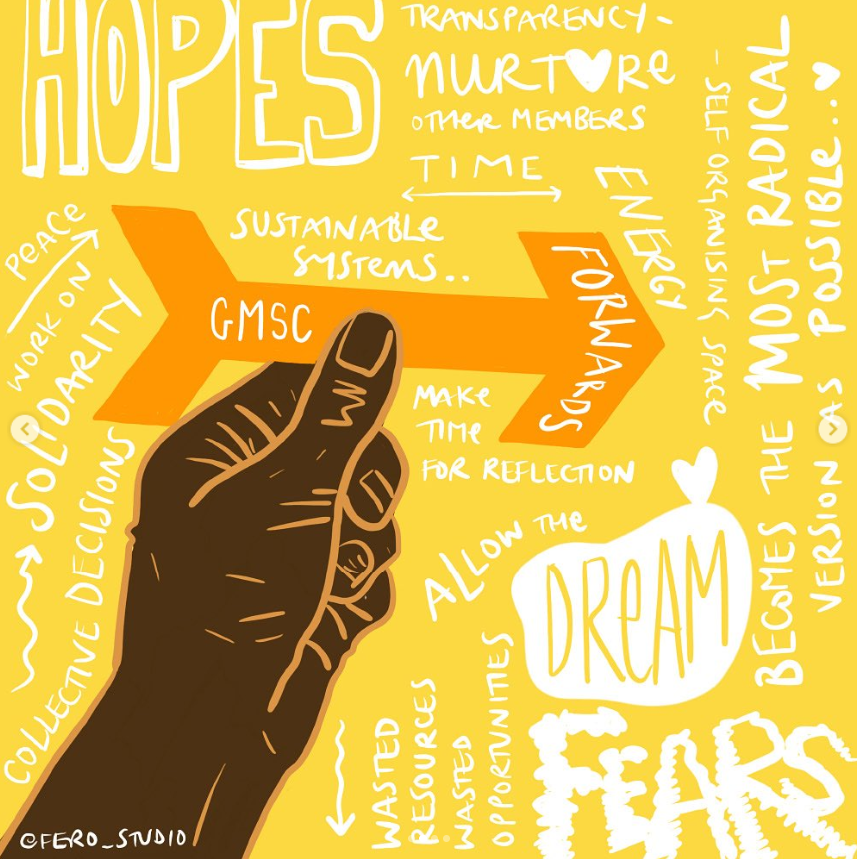 HOPES
TRANSPARENCY -
NURTURe
OTHeR MEMBERS
TIME
ENERGY
- SELF ORGANISING SPACE
BECOMES THE MOST RADICAL
VERSION AS POSSIBLE...
PEACe
WORK ON
SOLIDARITY
COLLECTIVE DECISIONS
SUSTAINABLe
SYSTems..
GMSC
FORWARDS
MAKe
TIMe
FOR REFLECTION
ALLOW THe
DReAM
WASTED
RESOURCES
WASTED
OPPORTUNITIES
FEARS
@FERO_STUDIO